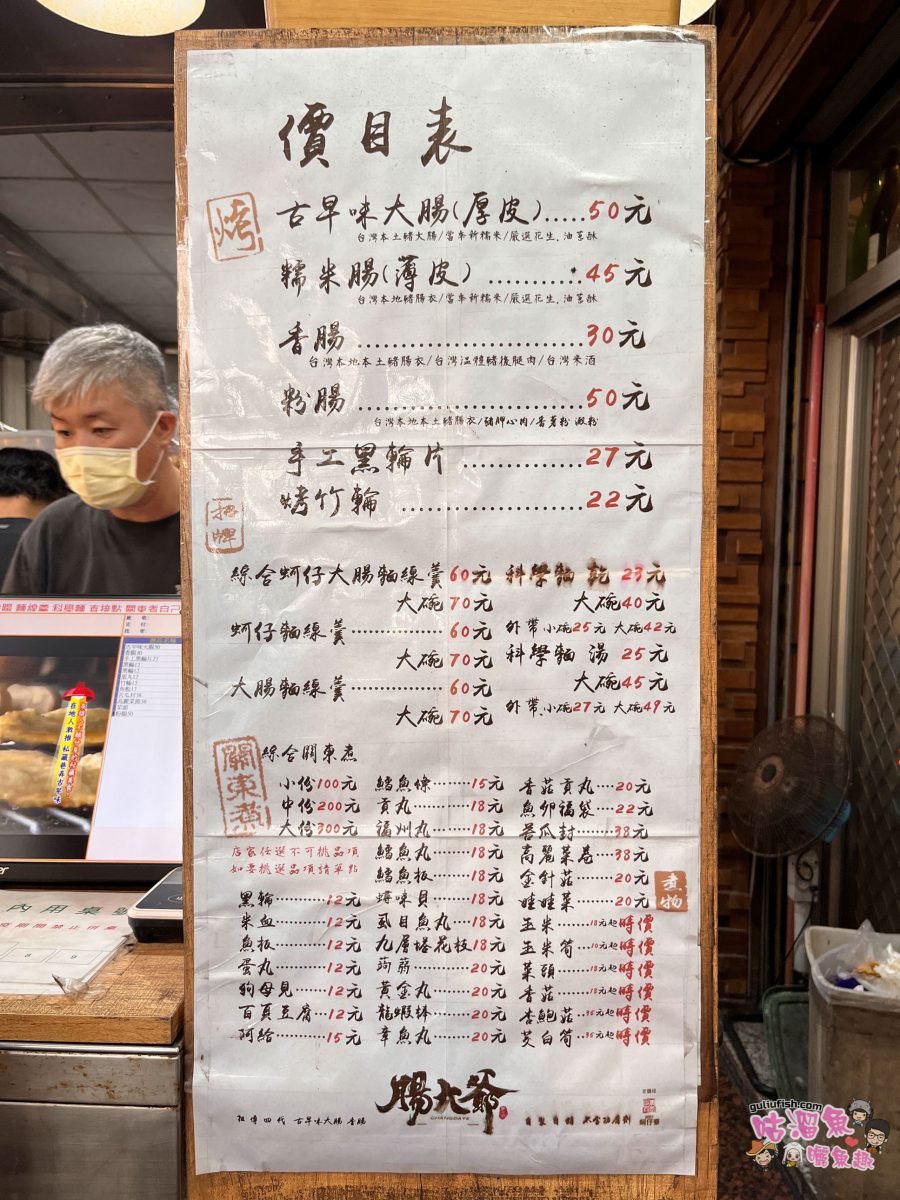 價目表
烤
古早味大腸(厚皮).....50元
台灣本土豬大腸/當季新糯米/嚴選花生.油蔥酥
糯米腸(薄皮)............45元
台灣本地豬腸衣/當季新糯米/嚴選花生.油蔥酥
香腸..............................30元
台灣本地本土豬腸衣/台灣溫體豬後腿肉/台灣米酒
粉腸..............................50元
台灣本地本土豬腸衣/豬胛心肉/番薯粉 澱粉
手工黑輪片...............27元
烤竹輪.......................22元
招牌
綜合蚵仔大腸麵線羹 60元
大碗 70元
蚵仔麵線羹................60元
大碗 70元
大腸麵線羹................60元
大碗 70元
科學麵 乾 23元
大碗 40元
外帶 小碗25元 大碗42元
科學麵 湯 25元
大碗 45元
外帶.小碗27元 大碗49元
關東煮
綜合關東煮
小份100元
中份200元
大份300元
店家任選不可挑品項
如要挑選品項請單點
黑輪.........12元
米血.........12元
魚板.........12元
蛋丸.........12元
狗母見......12元
百頁豆腐...12元
阿給.........15元
鱈魚條........15元
貢丸...........18元
福州丸........18元
鱈魚丸........18元
鱈魚板........18元
燒味貝........18元
虱目魚丸.....18元
九層塔花枝18元
蒟蒻...........20元
黃金丸........20元
龍蝦棒........20元
章魚丸........20元
香菇貢丸...20元
魚卵福袋...22元
苦瓜封........38元
高麗菜卷...38元
金針菇........20元
娃娃菜........20元
玉米.....18元起時價
玉米筍...10元起時價
菜頭......18元起時價
香菇......18元起時價
杏鮑菇..35元起時價
茭白筍..35元起時價
煮物
腸大爺
CHANGDAYE
祖傳四代 古早味大腸 香腸
內用桌號
8
9
guliufish.com
咕溜魚
曬魚趣